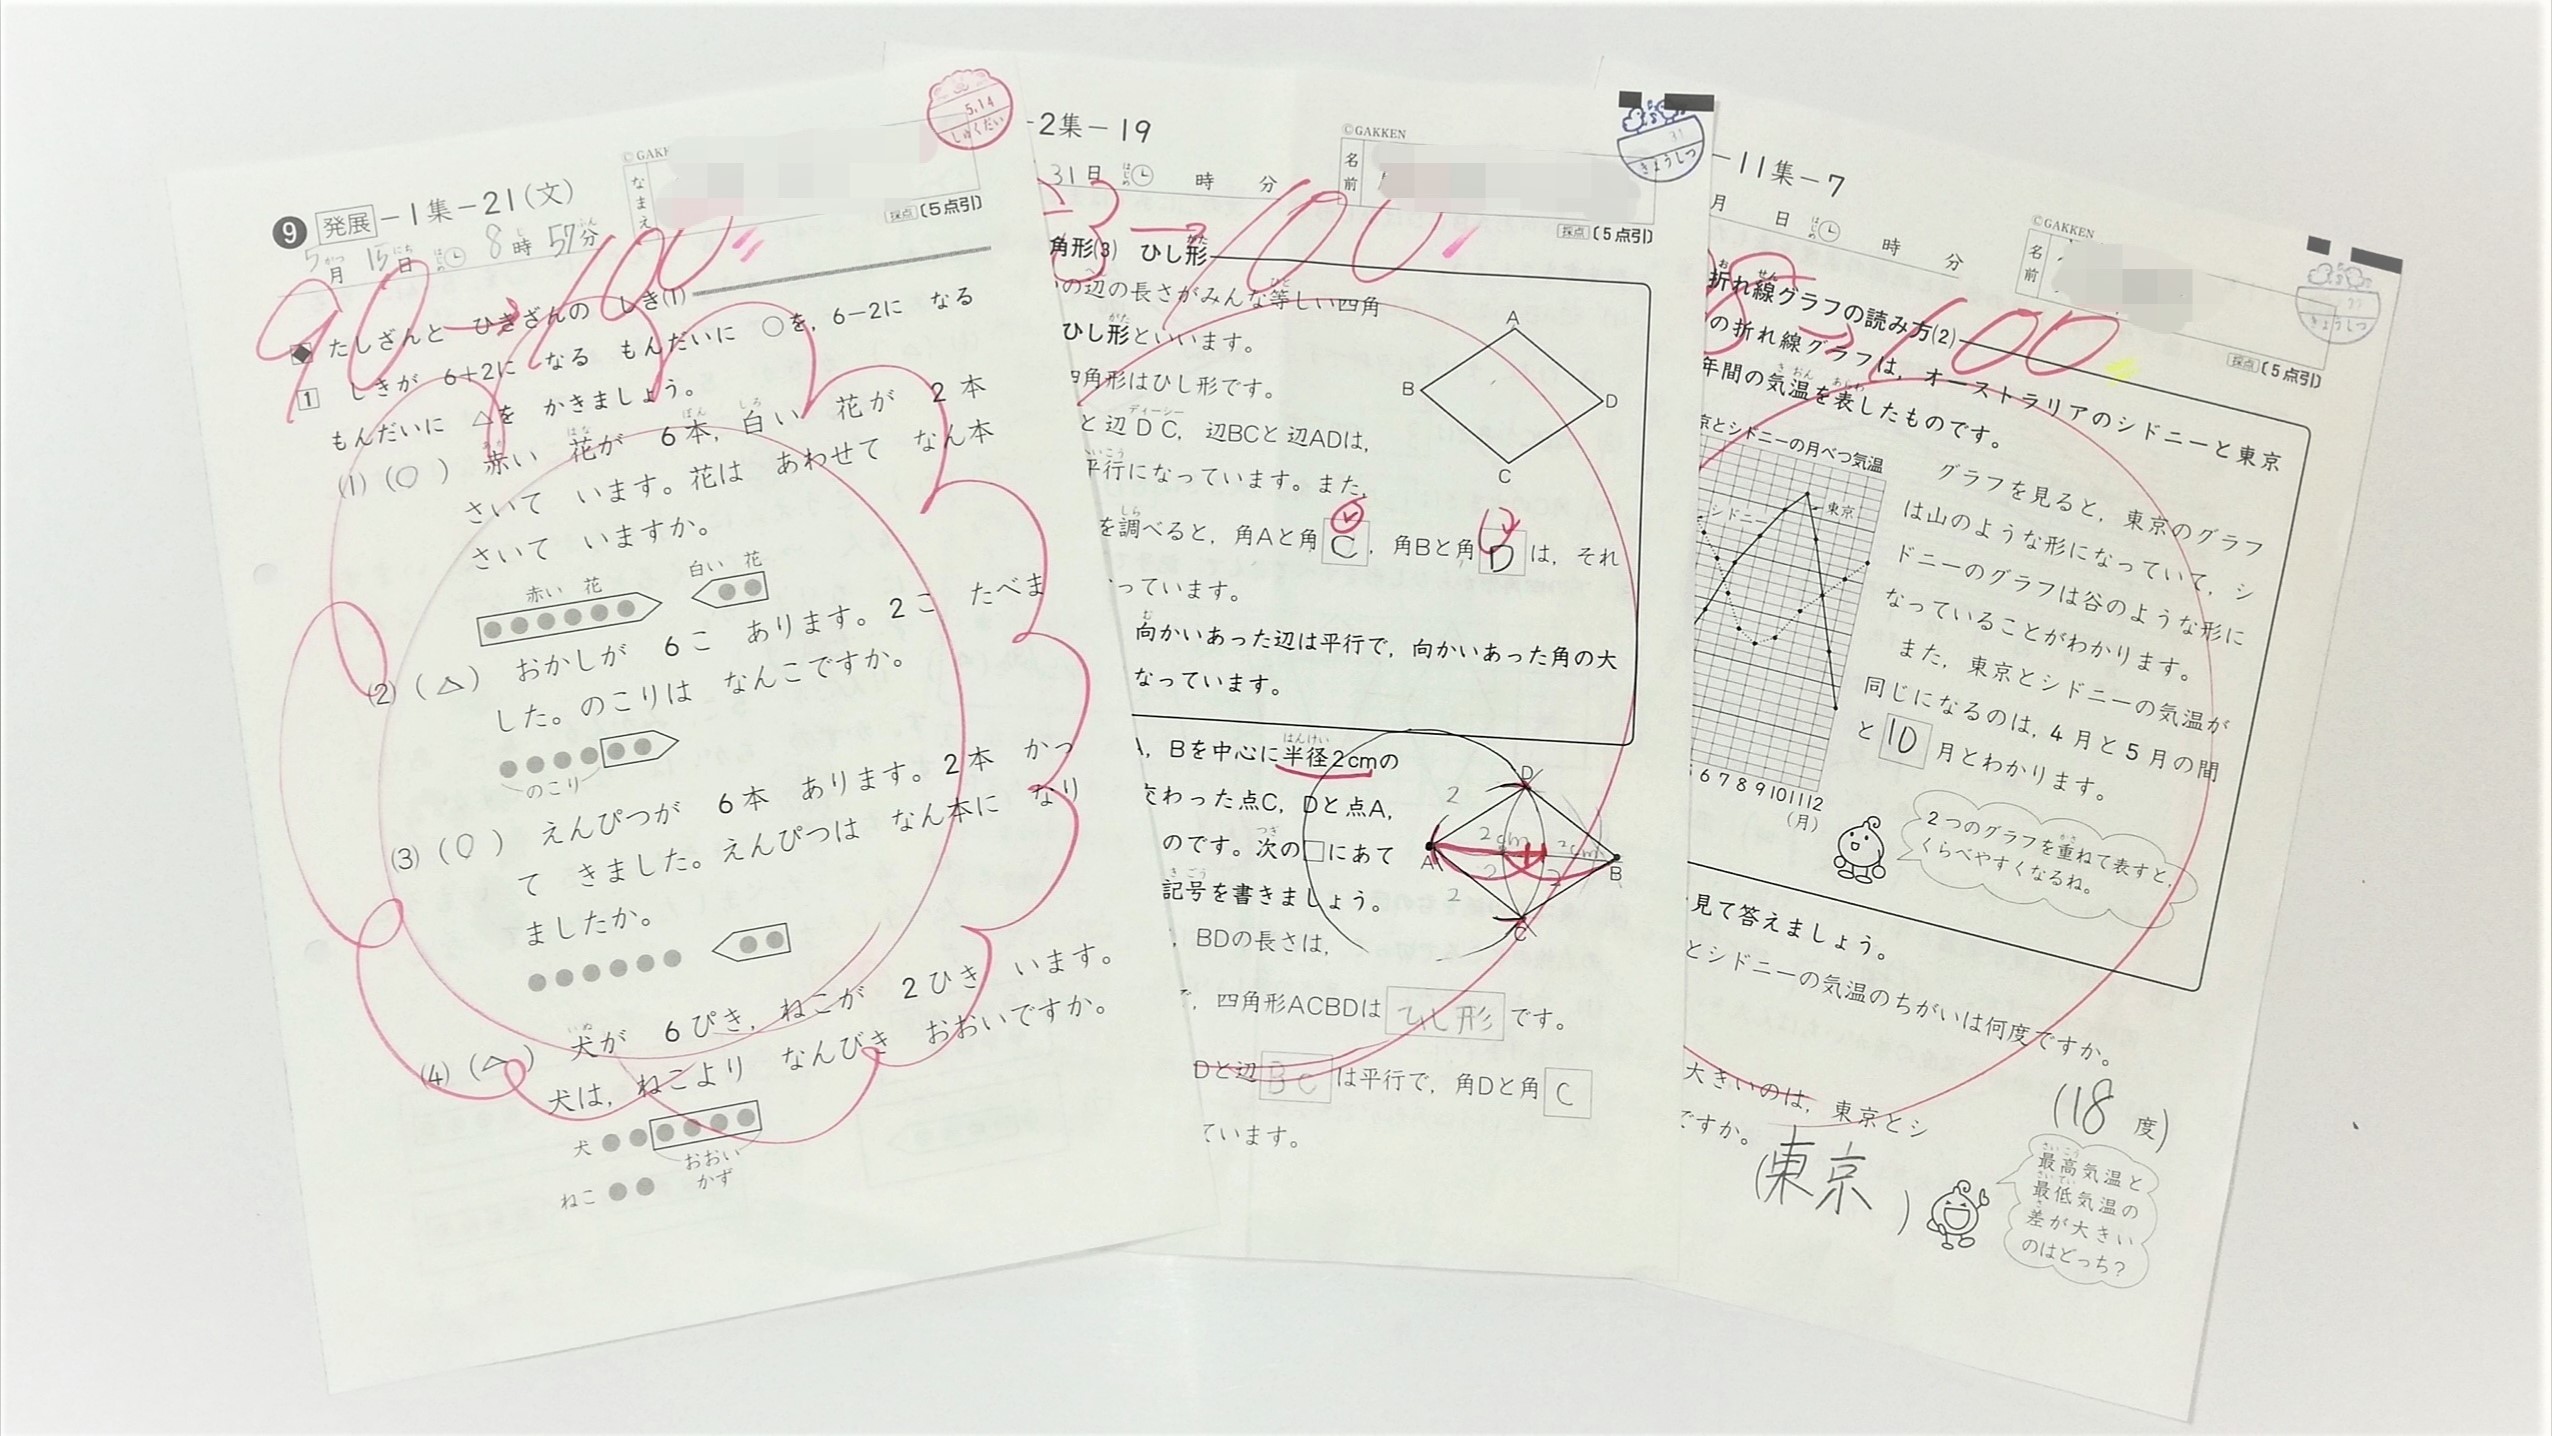 5.14
しゅくだい
©GAKK
なまえ
❾ 発展－1集－21(文)
5月 15日 はじめ 8時 57分
採点 〔5点引〕
90→100
◆ たしざんと ひきざんの しき(1)
1 しきが 6+2に なる もんだいに ○を, 6-2に なる
もんだいに △を かきましょう。
(1) (○) 赤い 花が 6本, 白い 花が 2本
さいて います。花は あわせて なん本
さいて いますか。
赤い 花 白い 花
(2) (△) おかしが 6こ あります。2こ たべま
した。のこりは なんこですか。
のこり
(3) (○) えんぴつが 6本 あります。2本 かっ
て きました。えんぴつは なん本に なり
ましたか。
(4) (△) 犬が 6ぴき, ねこが 2ひき います。
犬は, ねこより なんびき おおいですか。
犬
おおい
かず
ねこ
-2集-19
©GAKKEN
名前
きょうしつ
31日 はじめ 時 分
採点 〔5点引〕
→100
角形(3) ひし形
の辺の長さがみんな等しい四角
ひし形といいます。
四角形はひし形です。
と辺DC, 辺BCと辺ADは,
平行になっています。また,
を調べると, 角Aと角 C , 角Bと角 D は, それ
っています。
向かいあった辺は平行で, 向かいあった角の大
なっています。
A
B
D
C
, Bを中心に半径2cmの
交わった点C, Dと点A,
のです。次の□にあて
記号を書きましょう。
, BDの長さは,
, 四角形ACBDは ひし形 です。
Dと辺 BC は平行で, 角Dと角 C
ています。
D
2
2cm 2cm
A B
2 2
2
C
-11集-7
©GAKKEN
名前
きょうしつ
月 日 はじめ 時 分
採点 〔5点引〕
→100
折れ線グラフの読み方(2)
の折れ線グラフは, オーストラリアのシドニーと東京
年間の気温を表したものです。
京とシドニーの月べつ気温
東京
シドニー
6 7 8 9 10 11 12
(月)
グラフを見ると, 東京のグラフ
は山のような形になっていて, シ
ドニーのグラフは谷のような形に
なっていることがわかります。
また, 東京とシドニーの気温が
同じになるのは, 4月と5月の間
と 10 月とわかります。
2つのグラフを重ねて表すと,
くらべやすくなるね。
見て答えましょう。
とシドニーの気温のちがいは何度ですか。
(18 度)
大きいのは, 東京とシ
ですか。
(東京)
最高気温と
最低気温の
差が大きい
のはどっち?